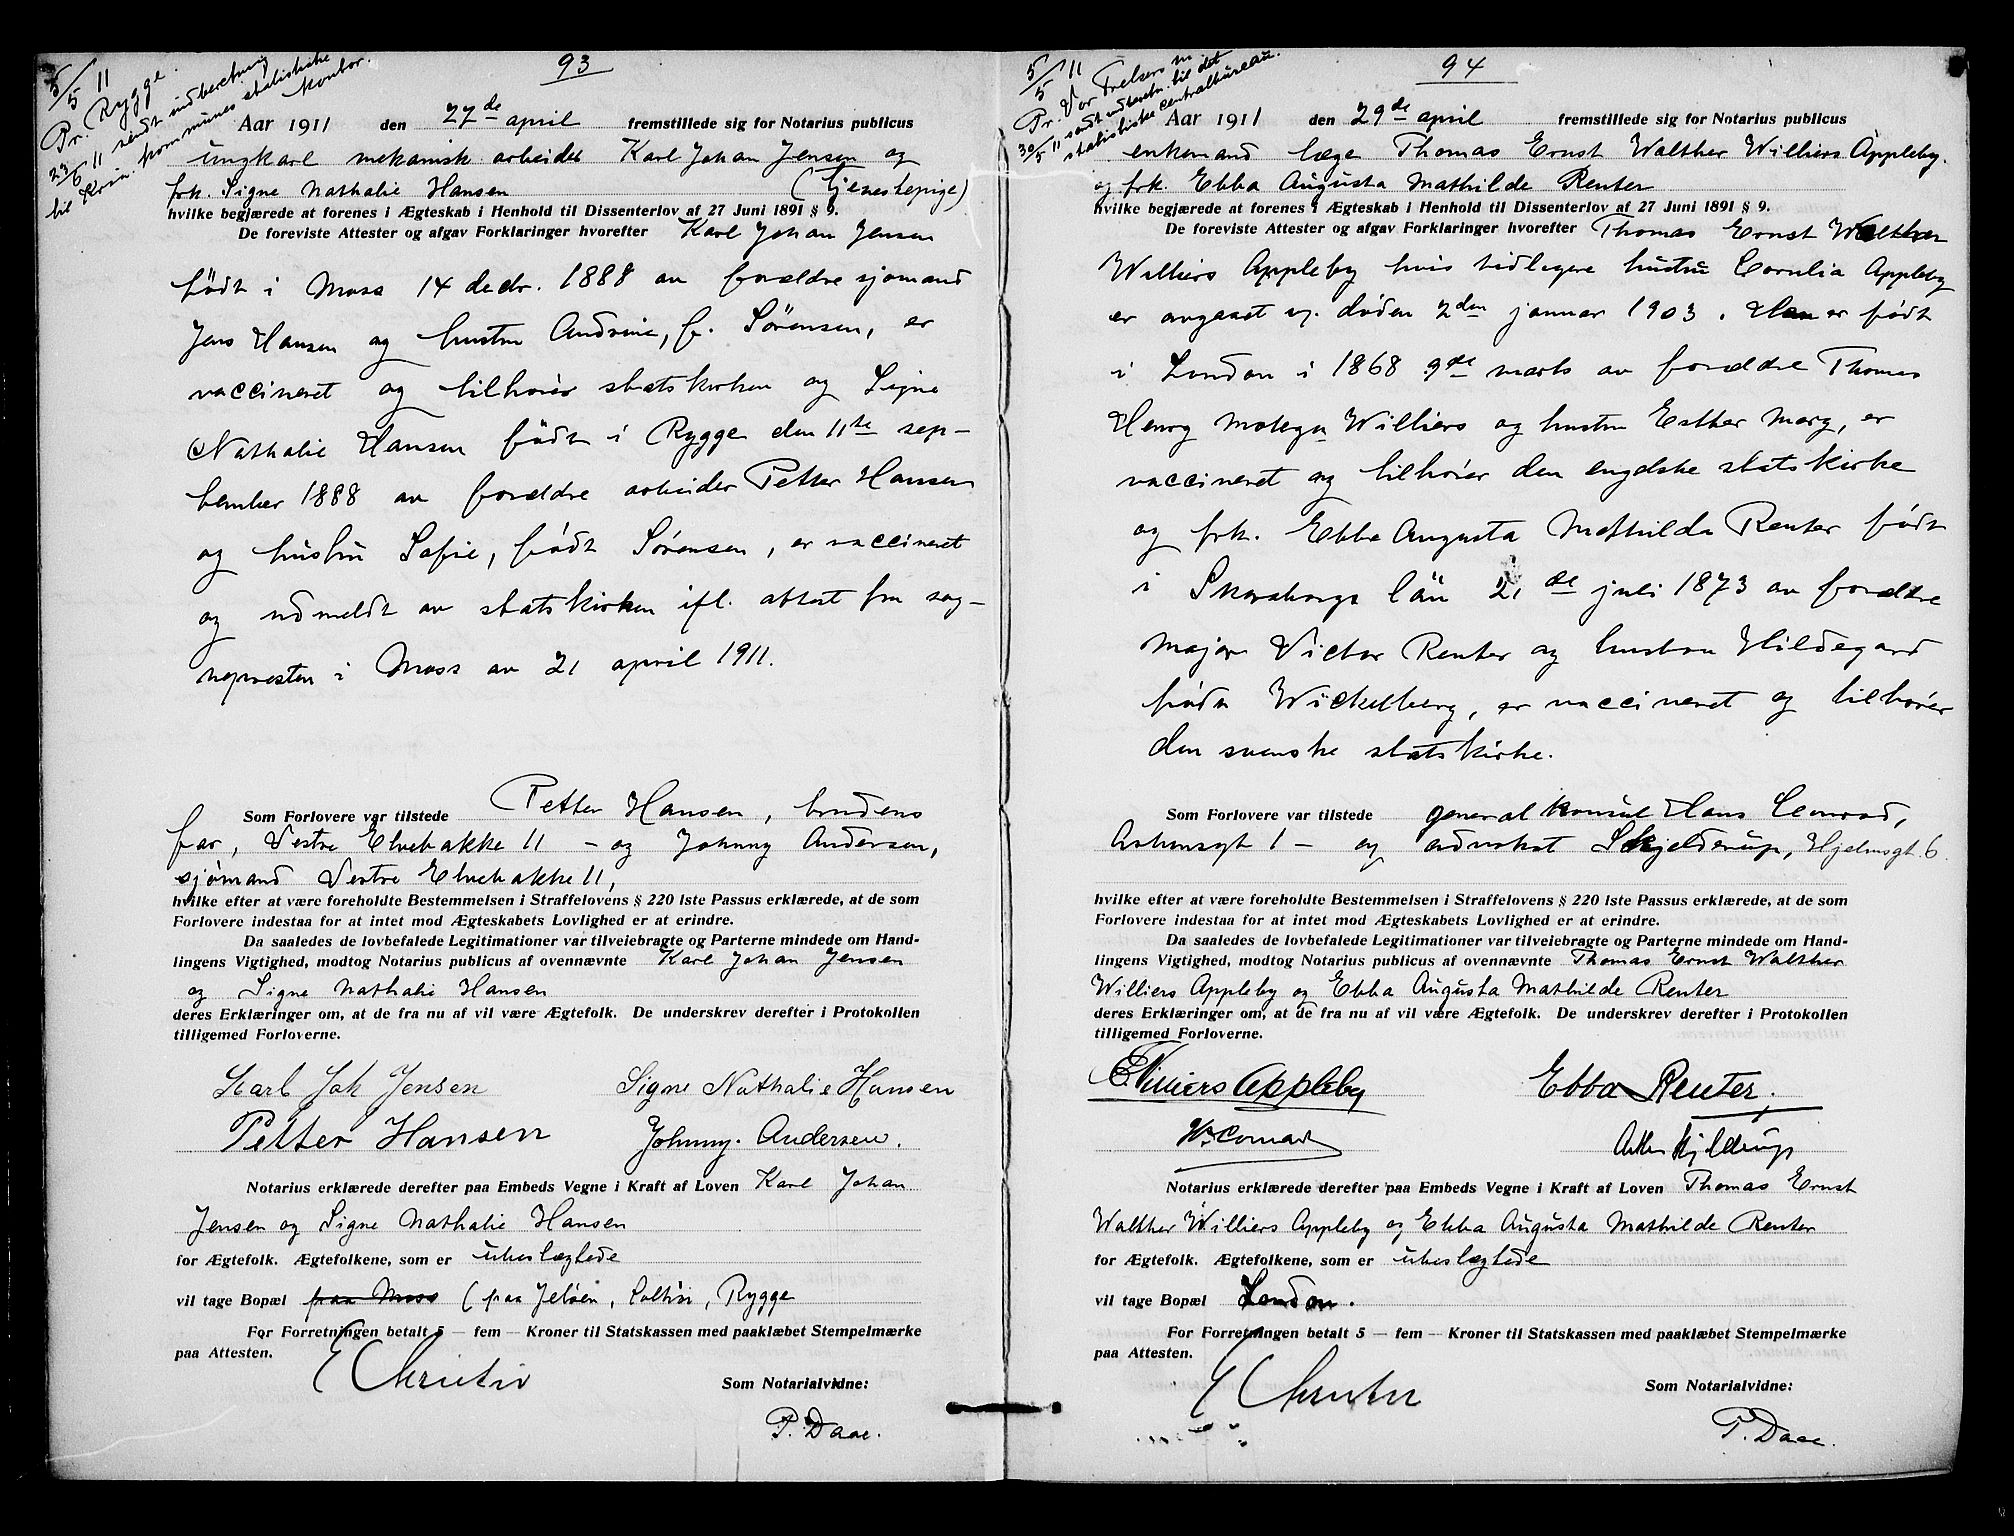 93
5/5 11
Pr. Rygge.
23/6 11 sendt indberetning
til Kria. kommunes statistiske
kontor.
Aar 1911 den 27de april fremstillede sig for Notarius publicus
ungkarl mekanisk arbeider Karl Johan Jensen og
frk. Signe Nathalie Hansen (tjenestepige)
hvilke begjærede at forenes i Ægteskab i Henhold til Dissenterlov af 27 Juni 1891 § 9.
De foreviste Attester og afgav Forklaringer hvorefter Karl Johan Jensen
født i Moss 14 decbr. 1888 av forældre sjømand
Jens Hansen og hustru Andrine, f. Sørensen, er
vaccineret og tilhører statskirken og Signe
Nathalie Hansen født i Rygge den 11te sep-
tember 1888 av forældre arbeider Petter Hansen
og hustru Sofie, født Sørensen, er vaccineret
og udmeldt av statskirken ifl. attest fra sog-
nepresten i Moss av 21 april 1911.
Som Forlovere var tilstede Petter Hansen, brudens
far, Vestre Elvebakke 11 - og Johnny Andersen,
sjømand Vestre Elvebakke 11,
hvilke efter at være foreholdte Bestemmelsen i Straffelovens § 220 1ste Passus erklærede, at de som
Forlovere indestaa for at intet mod Ægteskabets Lovlighed er at erindre.
Da saaledes de lovbefalede Legitimationer var tilveiebragte og Parterne mindede om Hand-
lingens Vigtighed, modtog Notarius publicus af ovennævnte Karl Johan Jensen
og Signe Nathalie Hansen
deres Erklæringer om, at de fra nu af vil være Ægtefolk. De underskrev derefter i Protokollen
tilligemed Forloverne.
Karl Joh Jensen Signe Nathalie Hansen
Petter Hansen Johnny. Andersen.
Notarius erklærede derefter paa Embeds Vegne i Kraft af Loven Karl Johan
Jensen og Signe Nathalie Hansen
for Ægtefolk. Ægtefolkene, som er ubeslægtede
vil tage Bopæl paa Moss (paa Jeløen, , Rygge
For Forretningen betalt 5 — fem — Kroner til Statskassen med paaklæbet Stempelmærke
paa Attesten.
E Christie
Som Notarialvidne:
P. Daae.
94
5/5 11
Pr. Vor Frelsers m
30/5 11 sendt indberetn. til det
statistiske centralbureau.
Aar 1911 den 29de april fremstillede sig for Notarius publicus
enkemand læge Thomas Ernst Walther Williers Appleby.
og frk. Ebba Augusta Mathilde Renter
hvilke begjærede at forenes i Ægteskab i Henhold til Dissenterlov af 27 Juni 1891 § 9.
De foreviste Attester og afgav Forklaringer hvorefter Thomas Ernst Walther
Williers Appleby hvis tidligere hustru Cornelia Appleby
er avgaaet v. døden 2den januar 1903. Han er født
i London i 1868 9de marts av forældre Thomas
Henry Williers og hustru Esther Mary, er
vaccineret og tilhører den engelske statskirke
og frk. Ebba Augusta Mathilde Renter født
i Skaraborgs län 21de juli 1873 av forældre
major Victor Renter og hustru Hildegard
født Wickelberg, er vaccineret og tilhører
den svenske statskirke.
Som Forlovere var tilstede generalkonsul Hans Conrad,
Askersgt 1 - og advokat Skjelderup, Hjelmsgt. 6.
hvilke efter at være foreholdte Bestemmelsen i Straffelovens § 220 1ste Passus erklærede, at de som
Forlovere indestaa for at intet mod Ægteskabets Lovlighed er at erindre.
Da saaledes de lovbefalede Legitimationer var tilveiebragte og Parterne mindede om Hand-
lingens Vigtighed, modtog Notarius publicus af ovennævnte Thomas Ernst Walther
Williers Appleby og Ebba Augusta Mathilde Renter
deres Erklæringer om, at de fra nu af vil være Ægtefolk. De underskrev derefter i Protokollen
tilligemed Forloverne.
Villiers Appleby Ebba Renter.
Hs Conrad Skjelderup
Notarius erklærede derefter paa Embeds Vegne i Kraft af Loven Thomas Ernst
Walther Williers Appleby og Ebba Augusta Mathilde Renter
for Ægtefolk. Ægtefolkene, som er ubeslægtede
vil tage Bopæl London.
For Forretningen betalt 5 — fem — Kroner til Statskassen med paaklæbet Stempelmærke
paa Attesten.
E Christie
Som Notarialvidne:
P. Daae.